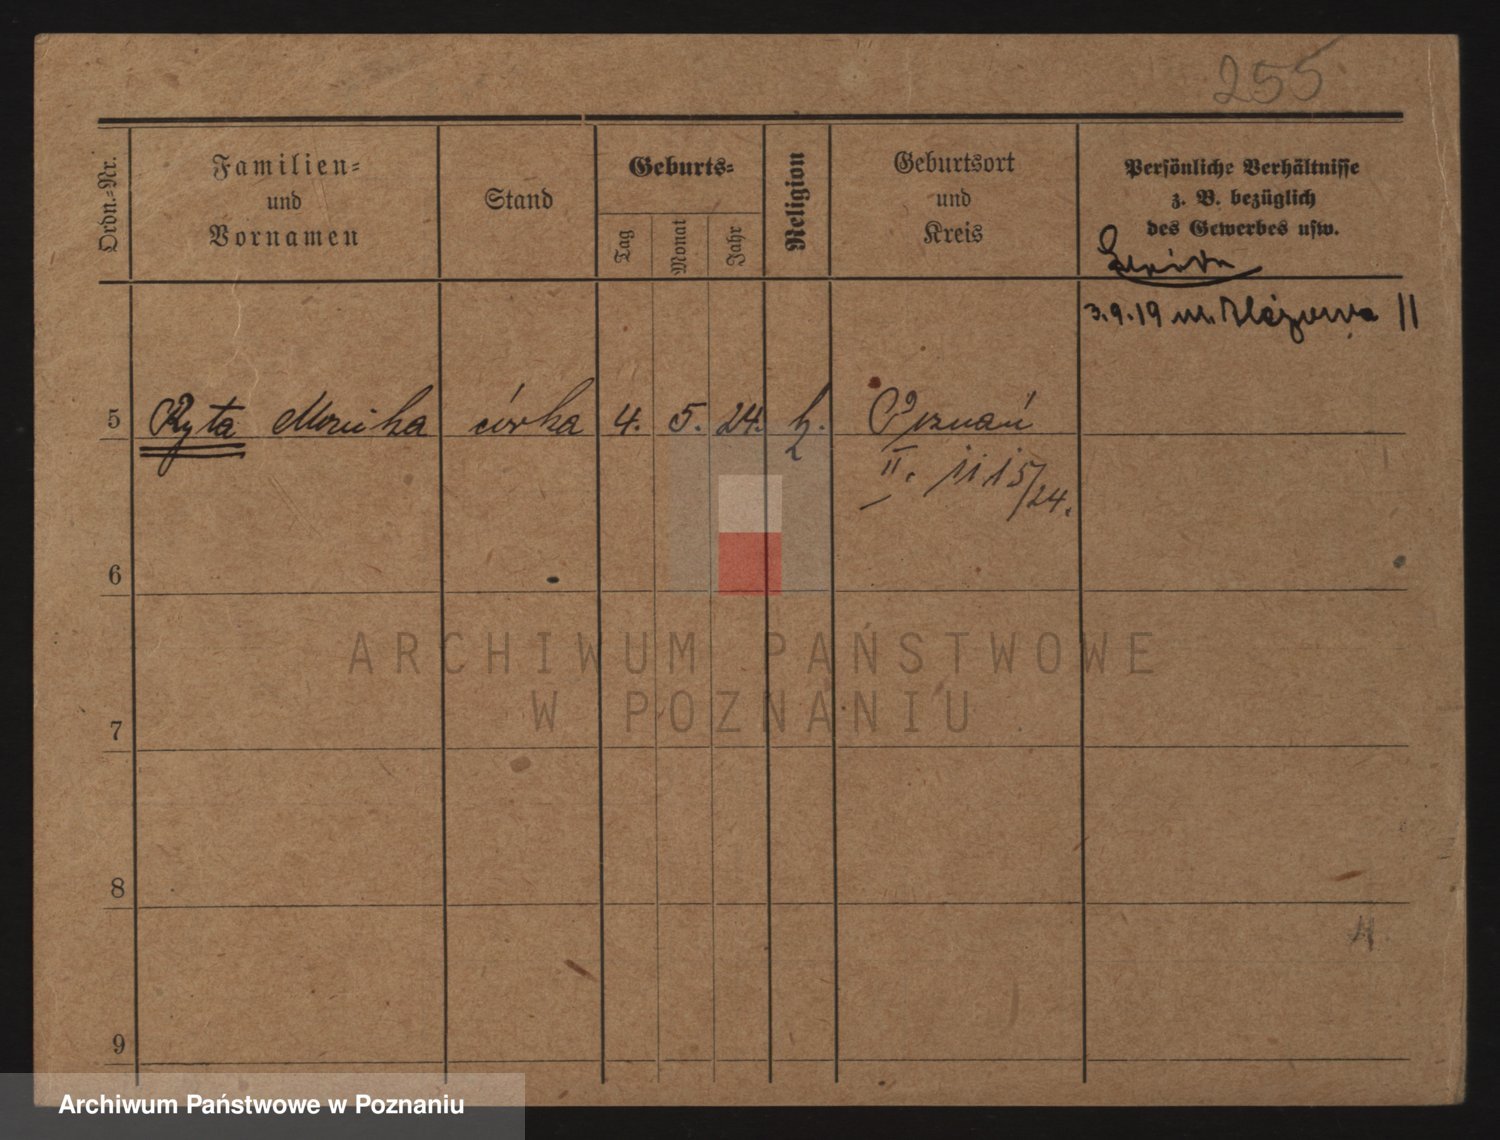 255
Ordn.-Nr.
Familien-
und
Vornamen
Stand
Geburts-
Tag
Monat
Jahr
Religion
Geburtsort
und
Kreis
Persönliche Verhältnisse
z. B. bezüglich
des Gewerbes usw.
3.9.19 ul. 11
5 Ryta Monika córka 4. 5. 24. k. Poznań
II. 15/24.
6
7
8
9
ARCHIWUM PAŃSTWOWE
W POZNANIU
4
Archiwum Państwowe w Poznaniu